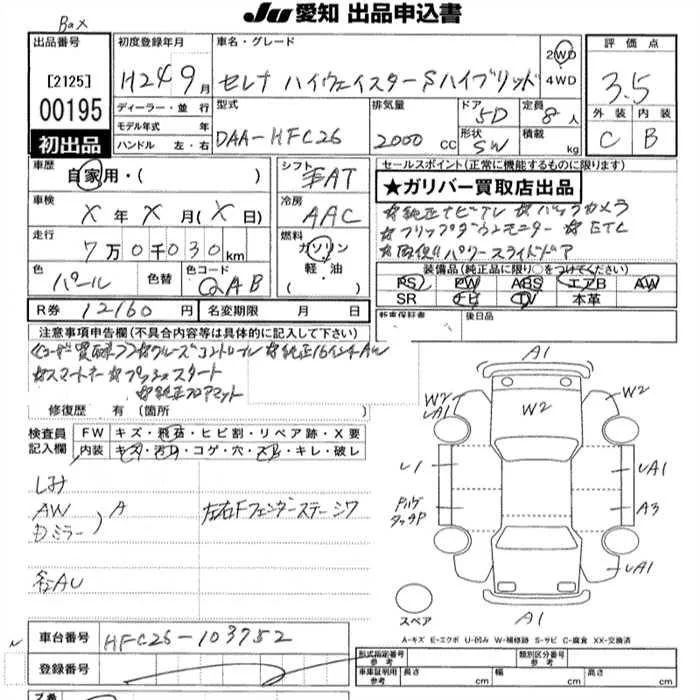 Bax
JU 愛知 出品申込書
出品番号
[2125]
00195
初出品
初度登録年月
H24 9月
ディーラー・並行
モデル年式 年
ハンドル 左・右
車名・グレード
セレナ ハイウェイスターSハイブリッド
2WD
4WD
型式
DAA-HFC26
排気量
2000 CC
ドア
5D
形状
SW
定員
8人
積載
kg
評価点
3.5
外装 内装
C B
車歴
自家用・( )
車検
X年X月(X日)
走行
7万0千030km
色
パール
色替
色コード
QAB
シフト
AT
冷房
AAC
燃料
ガソリン
軽・油
( )
セールスポイント(正常に機能するものに限ります)
★ガリバー買取店出品
☆純正ナビTV ☆バックカメラ
☆フリップダウンモニター ☆ETC
☆両側パワースライドドア
装備品(純正品に限り○をつけてください)
PS PW ABS エアB AW
SR ナビ TV 本革
R券 12160円
名変期限 月 日
新車保証書
後日品
注意事項申告欄(不具合内容等は具体的に記入して下さい)
☆クルーズコントロール ☆純正16インチAW
☆スマートキー ☆プッシュスタート
☆純正フロアマット
修復歴 有 (箇所
検査員
記入欄
FW キズ・飛石・ヒビ割・リペア跡・X要
内装 キズ・汚れ・コゲ・穴・スレ・キレ・破レ
シミ
AW
ドミラー
A
左右Fフェンダーステーシワ
A1
W2
UA1
W2
W2
U1
UA1
A3
タッチP
UA1
A1
スペア
A-キズ E-エクボ U-凹み W-補修跡 S-サビ C-腐食 XX-交換済
車台番号
HFC26-103752
登録番号
形式指定番号
参考
類別区分番号
参考
車庫証明用
参考
長さ cm
幅 cm
高さ cm